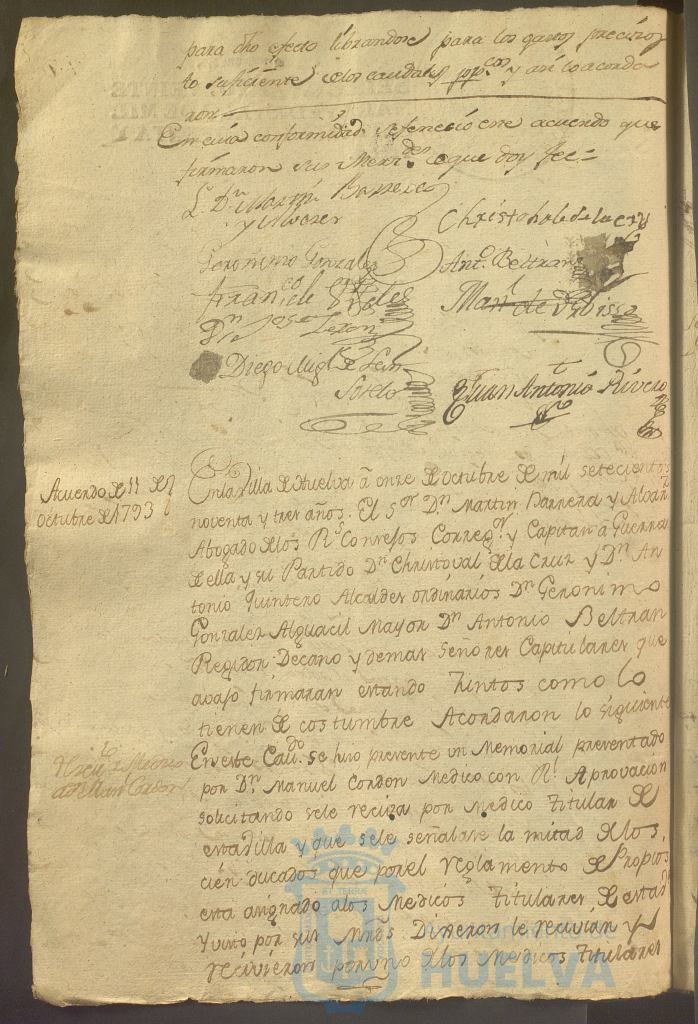 para dho efecto librandose para los gastos precisos
lo suficiente de los caudales ppcos y asi lo acorda
ron
En cuia conformidad se fenecio este acuerdo que
firmaron sus Merzdes de que doy fee =
L. Dn Martin Barrera
y Alvarez
Christobal de la Cruz
Geronimo Gonzalez
Anto Beltran
Franco de
Manl de
Dn Jose Lezon
Diego Migl de Leon
Sotelo
Juan Antonio Rivero
Acuerdo de 11 de
Octubre de 1793
En la Villa de Huelva à onze de Octubre de mil setecientos
noventa y tres años. El Sor Dn Martin Barrera y Alvarz
Abogado de los Rs Consejos Corregor y Capitan à Guerra
de ella y su Partido Dn Christoval de la Cruz y Dn An
tonio Quintero Alcaldes ordinarios Dn Geronimo
Gonzalez Alguacil Mayor Dn Antonio Beltran
Regidor Decano y demas Señores Capitulares que
avajo firmaran estando Juntos como lo
tienen de costumbre Acordaron lo siguiente
Recivto de Medico
a Dn Manl Cordon
En este Cavdo se hizo presente un Memorial presentado
por Dn Manuel Cordon Medico con Rl Aprovacion
solicitando se le reciva por Medico Titular de
esta Villa y que se le señalase la mitad de los
cien ducados que por el reglamento de Propios
esta asignado a los Medicos Titulares de esta
Y visto por sus Mrzds Dixeron le recivian y
recivieron por uno de los Medicos Titulares
HUELVA